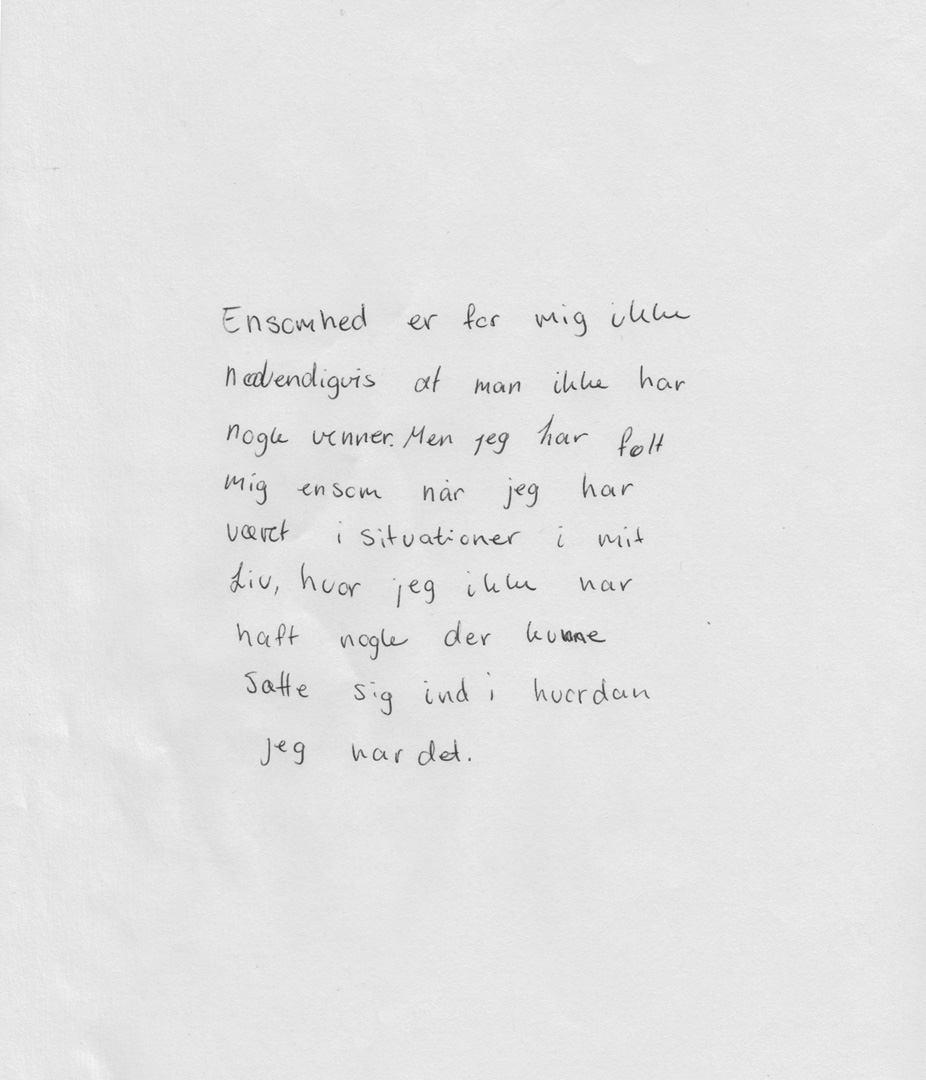 Ensomhed er for mig ikke
nødvendigvis at man ikke har
nogle venner. Men jeg har følt
mig ensom når jeg har
været i situationer i mit
Liv, hvor jeg ikke har
haft nogle der kunne
Sætte sig ind i hvordan
jeg har det.